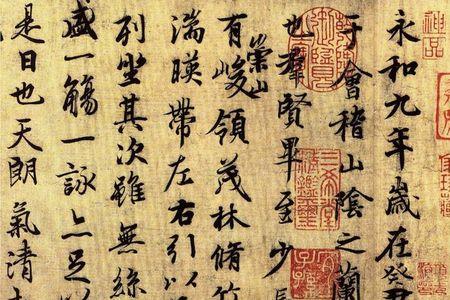 永和九年歲在癸
于會稽山陰之蘭
也羣賢畢至少
有崇山峻領茂林脩竹
湍暎帶左右引以
列坐其次雖無絲
盛一觴一詠亦足以
是日也天朗氣清
神品
三希堂精鑑璽